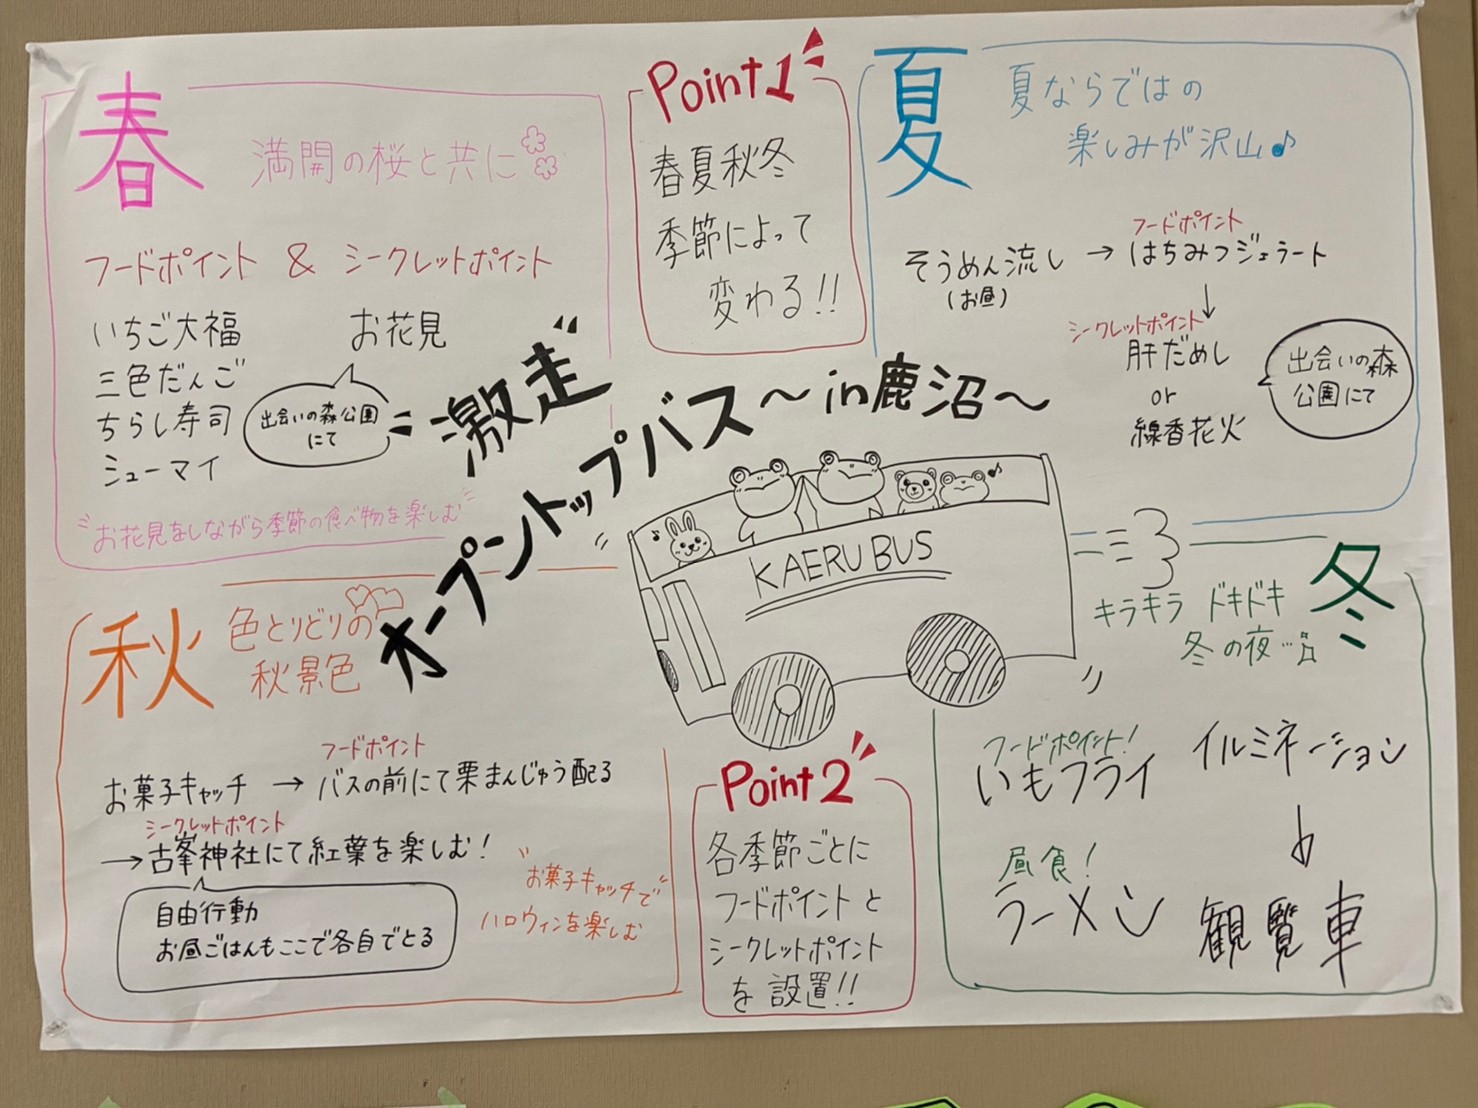 激走
オープントップバス〜in鹿沼〜
KAERU BUS
Point1
春夏秋冬
季節によって
変わる!!
春
満開の桜と共に
フードポイント & シークレットポイント
いちご大福
三色だんご
ちらし寿司
シューマイ
お花見
出会いの森公園
にて
お花見をしながら季節の食べ物を楽しむ
夏
夏ならではの
楽しみが沢山♪
そうめん流し
(お昼)
→
フードポイント
はちみつジェラート
↓
シークレットポイント
肝だめし
or
線香花火
出会いの森
公園にて
秋
色とりどりの
秋景色
お菓子キャッチ
→
フードポイント
バスの前にて栗まんじゅう配る
シークレットポイント
→古峯神社にて紅葉を楽しむ!
自由行動
お昼ごはんもここで各自でとる
お菓子キャッチで
ハロウィンを楽しむ
Point2
各季節ごとに
フードポイントと
シークレットポイント
を設置!!
冬
キラキラ ドキドキ
冬の夜…
フードポイント!
いもフライ
昼食!
ラーメン
イルミネーション
↓
観覧車